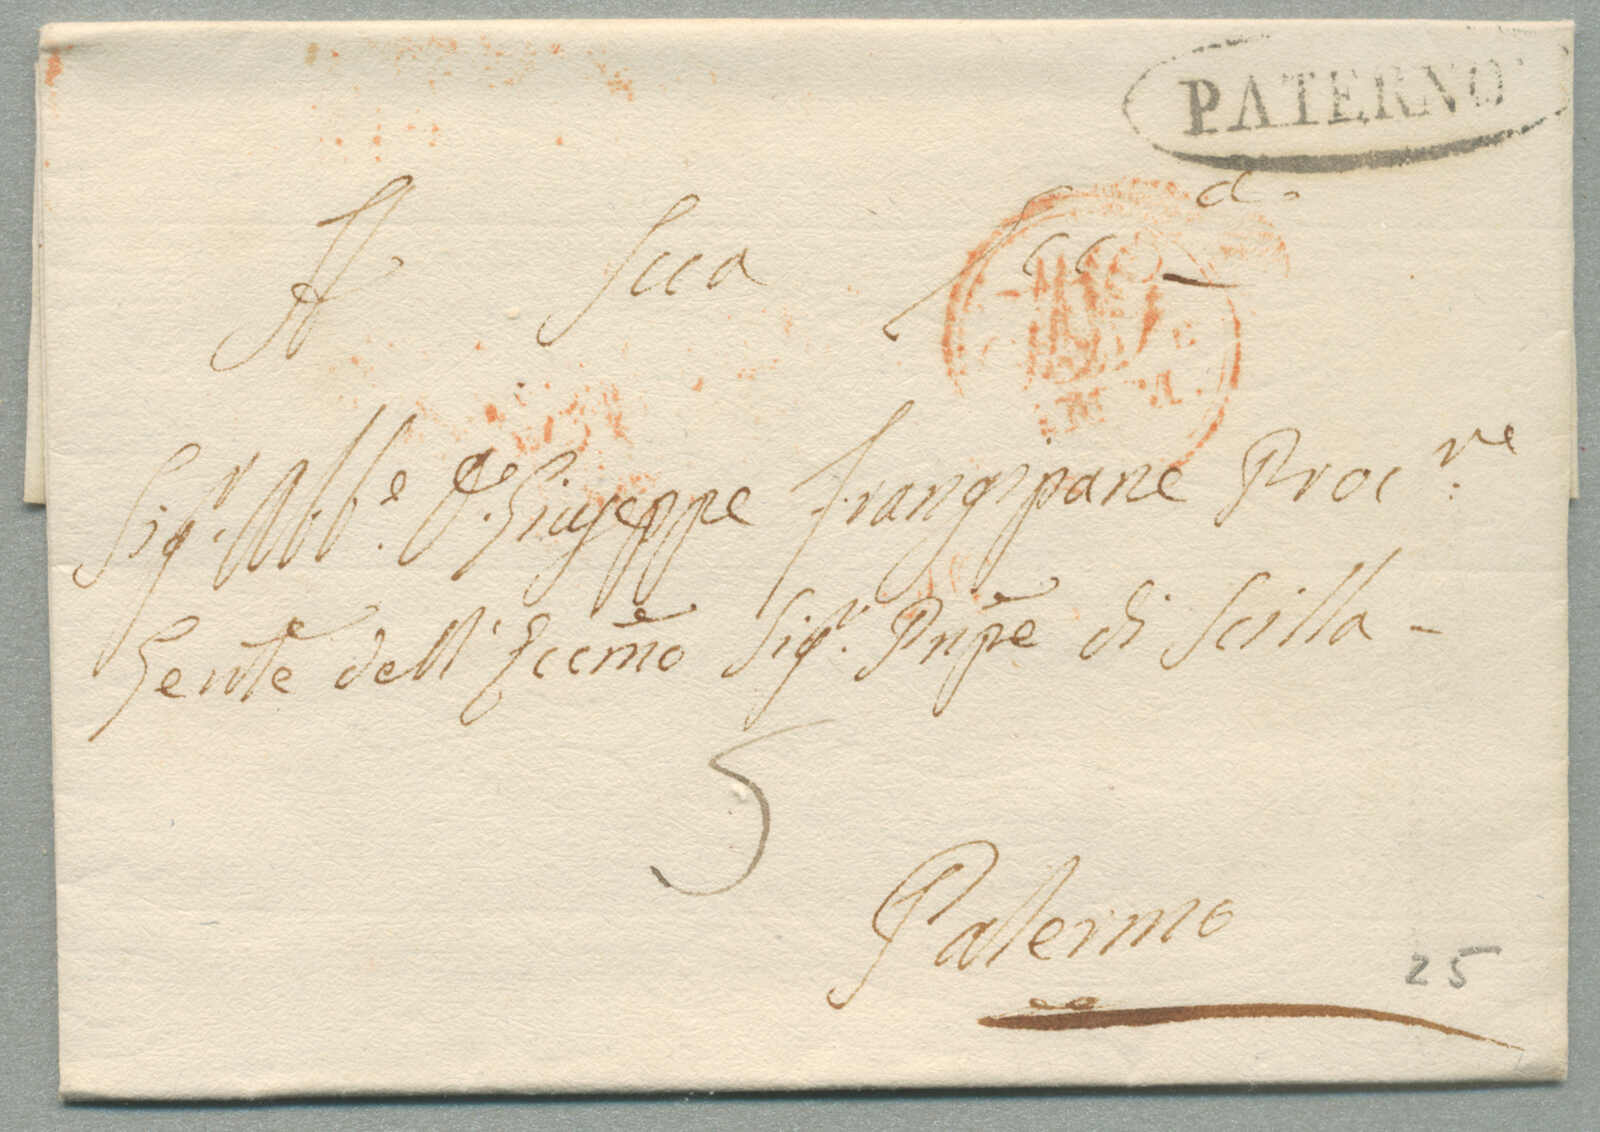 PATERNO'
A Sua Ecc.
Sig.r Abb.e D. Giuseppe Frangipane Proc.re
Gente dell' Eccmo Sig.r Pnpe di Scilla -
5
Palermo
25